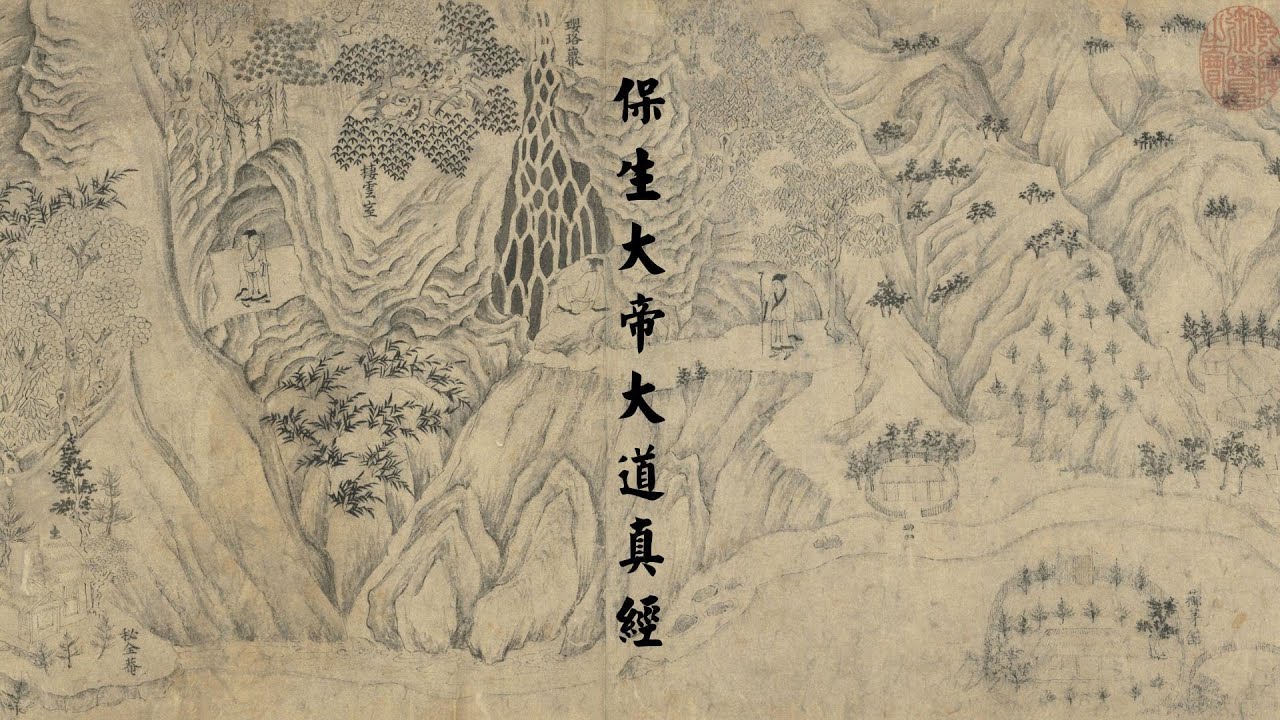 保生大帝大道真經
瓔珞巖
棲雲室
秘全菴